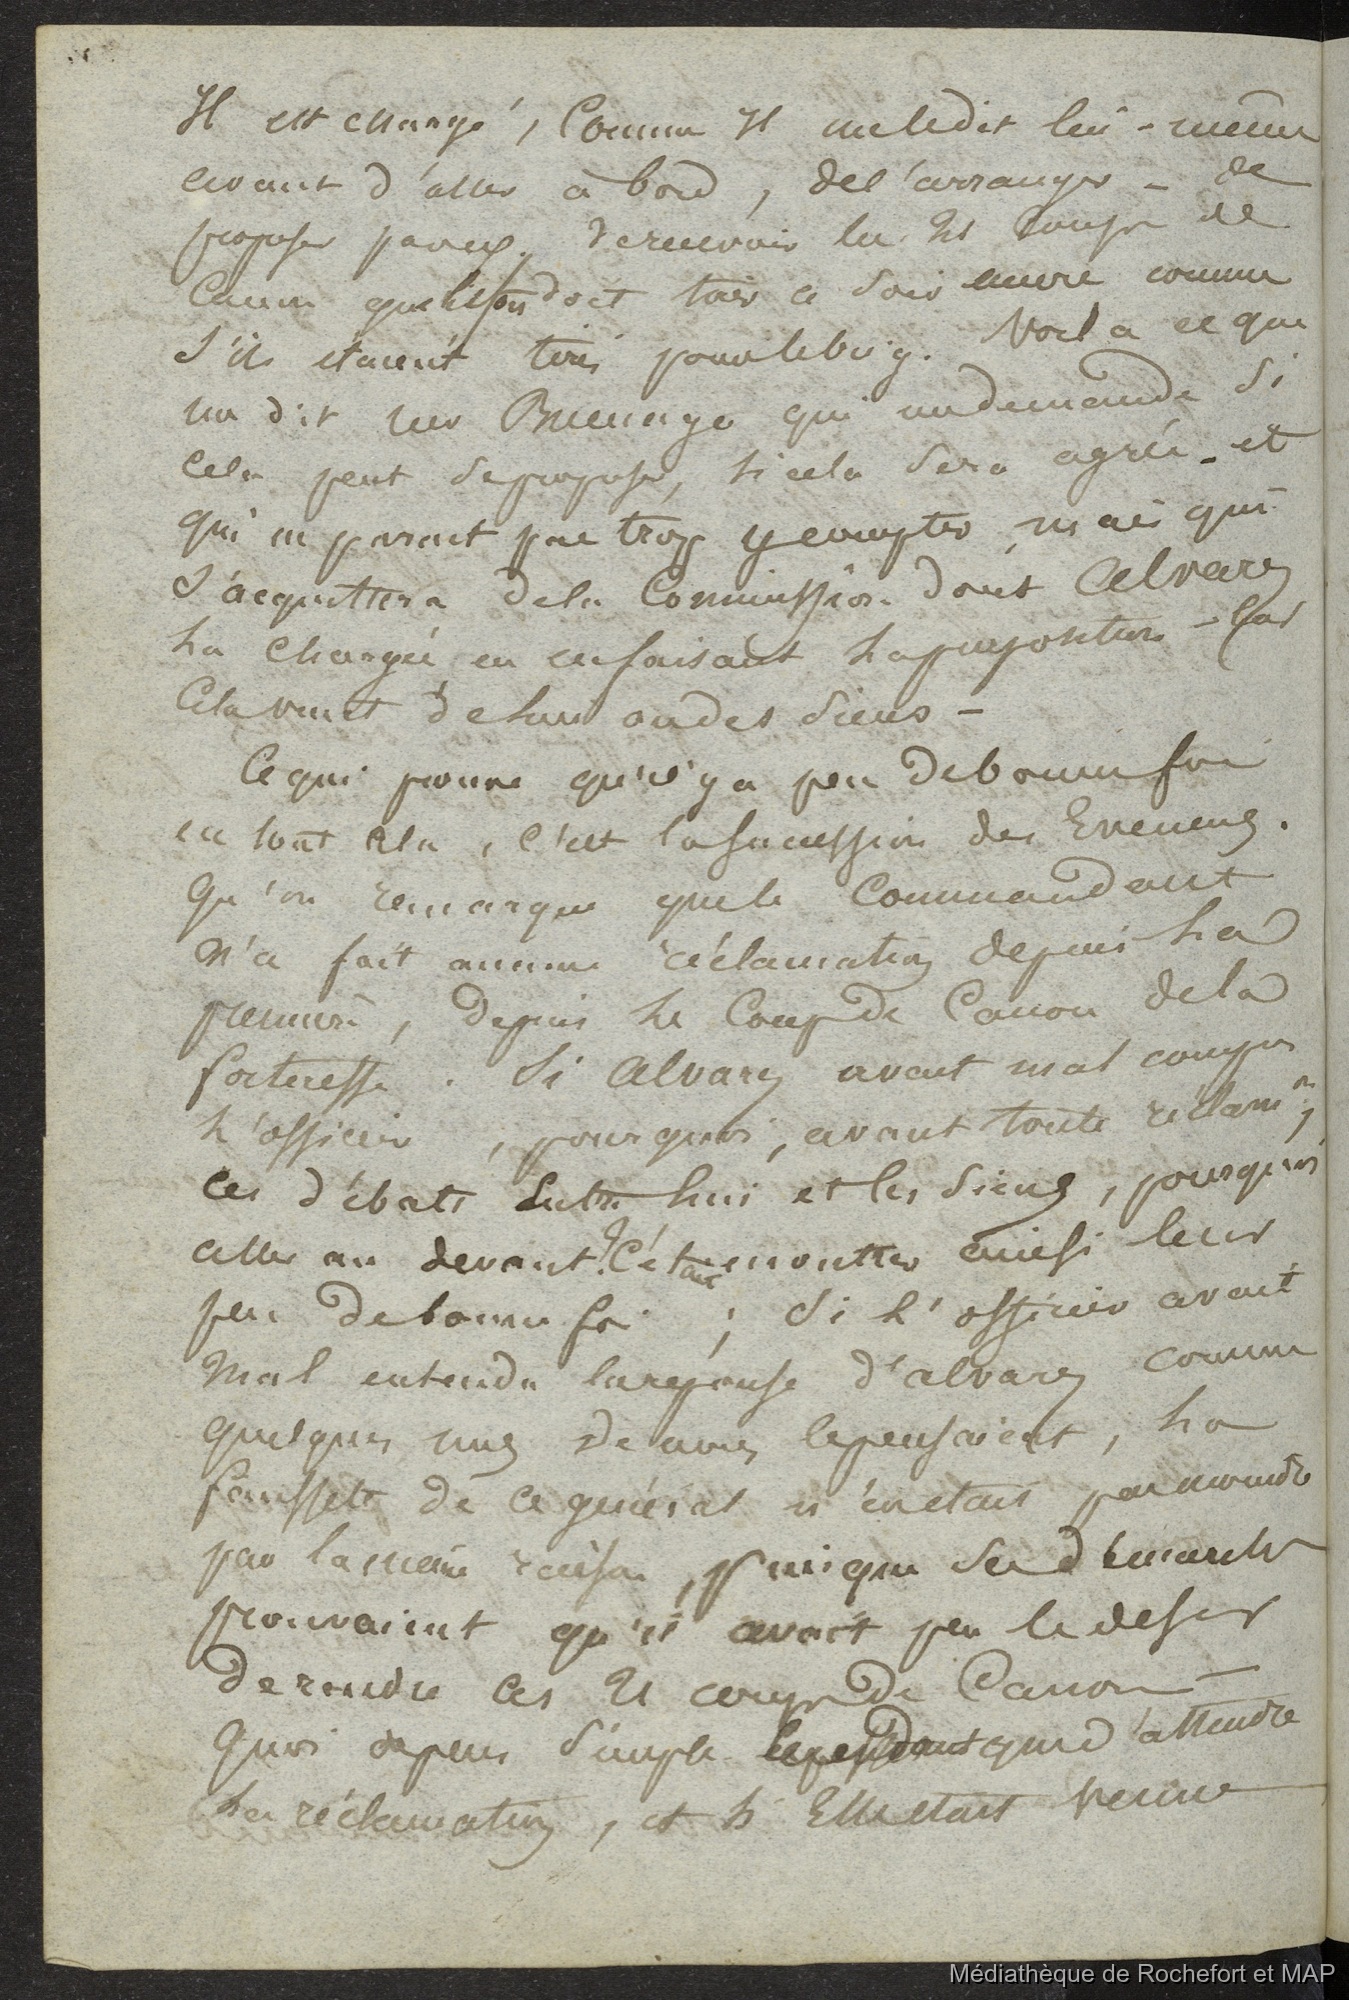 Il est chargé, Comme Il me le dit lui-même
avant d'aller à bord, de l'arranger - de
proposer par ex. de recevoir les 21 Coups de
Canon que l'on doit tirer ce soir encore comme
S'ils étaient tirés pour le brig. Voilà ce que
me dit mr qui me demande Si
Cela peut se proposer, si cela sera agréé - et
qui ne parait pas trop y compter, mais qui
S'acquittera de la Commission dont Alvarez
l'a chargé, en en faisant la proposition - Car
Cela vient de lui ou des Siens -
Ce qui prouve qu'il y a peu de bonne foi
en tout cela, c'est la succession des Evenens.
Qu'on remarque que le Commandant
N'a fait aucune réclamation depuis la
premiere, depuis le Coup de Canon de la
forteresse. Si Alvarez avait mal compris
l'officier, pourquoi, avant toute réclamon,
ces débats entre lui et les Siens, pourquoi
aller au devant? C'était montrer ainsi leur
peu de bonne foi; Si l'officier avait
Mal entendu la reponse d'alvarez comme
quelques uns de nous le pensaient, la
fausseté de ce général n'en etait pas moindre
par la même raison, puisque ses démarches
prouvaient qu'il avait peu le desir
de rendre ces 21 coups de Canon -
Quoi de plus Simple cependant que d'attendre
la réclamation, et si Elle etait venue
Médiathèque de Rochefort et MAP